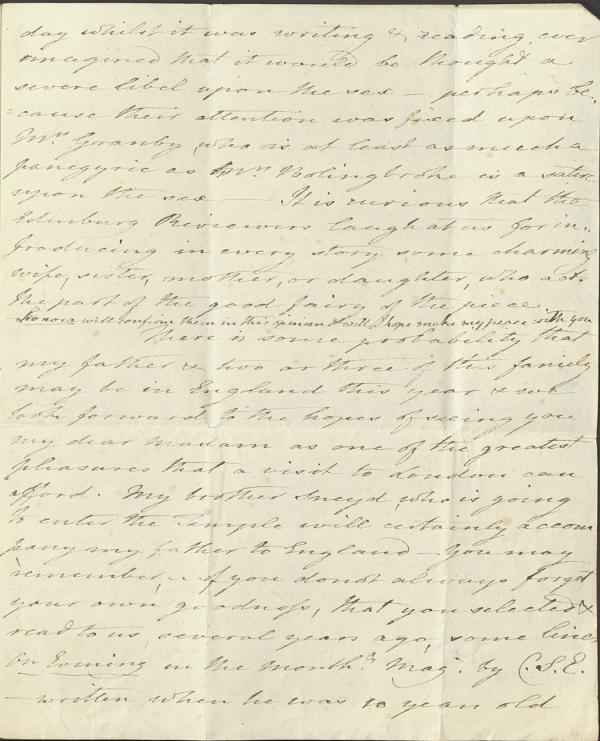 day whilst it was writing & reading ever
imagined that it would be thought a
severe libel upon the sex – perhaps be-
=cause their attention was fixed upon
Mrs Granby, who is at least as much a
panegyric as Mrs Bolingbroke is a satire
upon the sex — It is curious that the
Edinburg Reviewers laugh at us for in-
troducing in every story some charming
wife, sister, mother, or daughter, who acts
the part of the good fairy of the piece.
Leonora will confirm them in this opinion & will I hope make my peace with you
There is some probability that
my father & two or three of this family
may be in England this year & we
look forward to the hopes of seeing you
my dear madam as one of the greatest
pleasures that a visit to London can
afford. My brother Sneyd, who is going
to enter the Temple will certainly accom
pany my father to England – You may
remember, – if you do not always forget
your own goodness, that you selected &
read to us, several years ago, some lines
on Evening in the Monthly Mag. by C.S.E.
– written when he was 10 year old